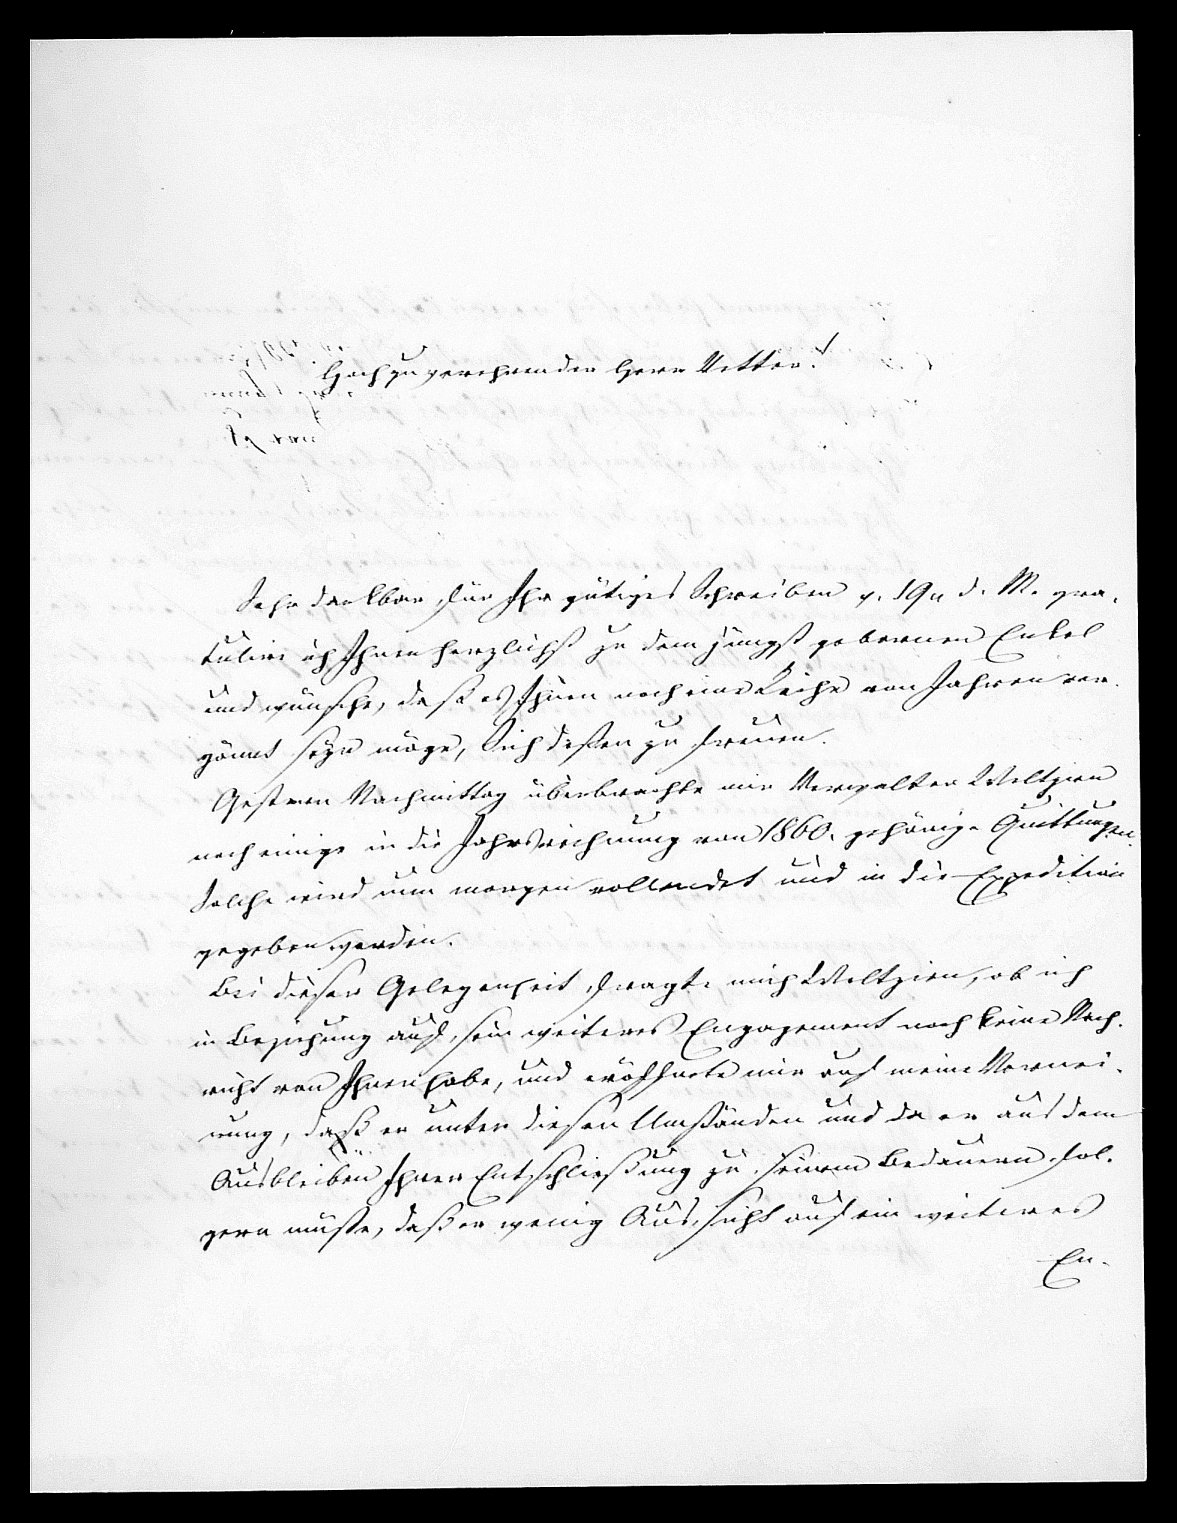 Hochzuverehrender Herr Vetter!
Sehr dankbar für Ihr gütiges Schreiben v. 19n d. M. gra-
tulire ich Ihnen herzlichst zu dem jüngst gebornen Enkel
und wünsche, daß es Ihnen noch eine Reihe von Jahren ver-
gönnt seyn möge, Sich dessen zu freuen.
Gestern Nachmittag überbrachte mir Verwalter Weltzien
noch einige in die Jahrsrechnung von 1860. gehörige Quittungen.
Solche wird nun morgen vollendet und in die Expedition
gegeben werden.
Bei dieser Gelegenheit fragte mich Weltzien, ob ich
in Beziehung auf sein weiteres Engagement noch keine Nach-
richt von Ihnen habe, und eröffnete mir auf meine Vernei-
nung, daß er unter diesen Umständen und da er aus dem
Ausbleiben Ihrer Entschließung zu seinem Bedauern fol-
gern müsse, daß er wenig Aussicht auf ein weiteres
En-